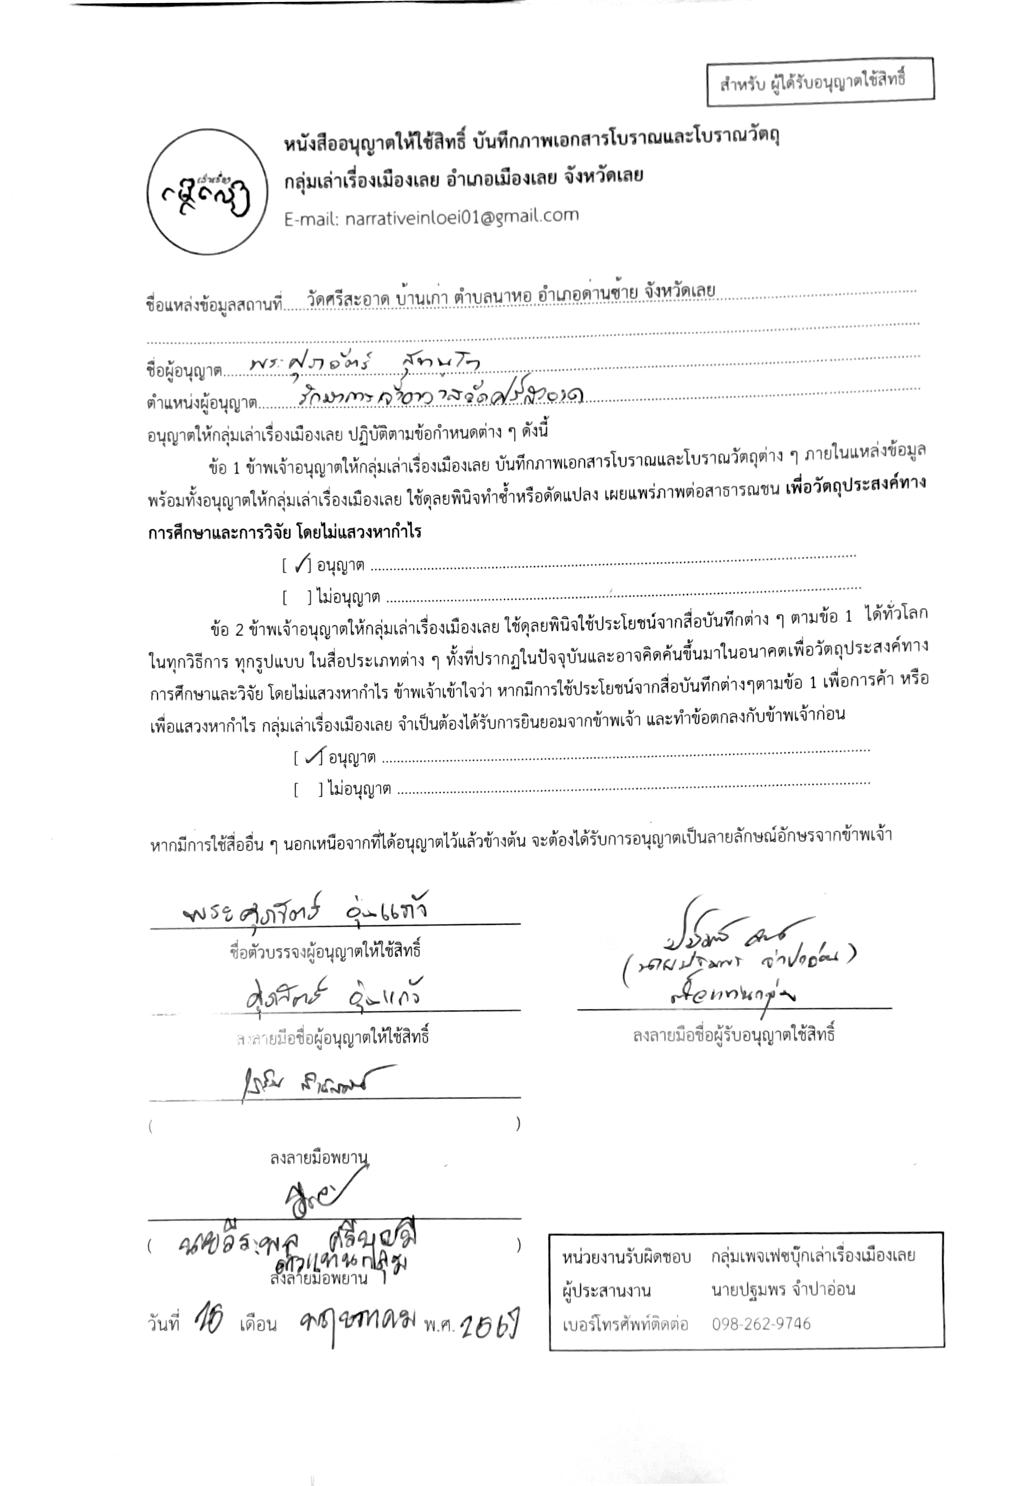 สำหรับ ผู้ได้รับอนุญาตใช้สิทธิ์
หนังสืออนุญาตให้ใช้สิทธิ์ บันทึกภาพเอกสารโบราณและโบราณวัตถุ
กลุ่มเล่าเรื่องเมืองเลย อำเภอเมืองเลย จังหวัดเลย
E-mail: narrativeinloei01@gmail.com
ชื่อแหล่งข้อมูลสถานที่.....วัดศรีสะอาด บ้านเก่า ตำบลนาหอ อำเภอด่านซ้าย จังหวัดเลย
ชื่อผู้อนุญาต.....พระศุภจิตร์
ตำแหน่งผู้อนุญาต.....รักษาการเจ้าอาวาสวัดศรีสะอาด
อนุญาตให้กลุ่มเล่าเรื่องเมืองเลย ปฏิบัติตามข้อกำหนดต่าง ๆ ดังนี้
ข้อ 1 ข้าพเจ้าอนุญาตให้กลุ่มเล่าเรื่องเมืองเลย บันทึกภาพเอกสารโบราณและโบราณวัตถุต่าง ๆ ภายในแหล่งข้อมูล
พร้อมทั้งอนุญาตให้กลุ่มเล่าเรื่องเมืองเลย ใช้ดุลยพินิจทำซ้ำหรือดัดแปลง เผยแพร่ภาพต่อสาธารณชน เพื่อวัตถุประสงค์ทาง
การศึกษาและการวิจัย โดยไม่แสวงหากำไร
[ ✓ ] อนุญาต .....
[ ] ไม่อนุญาต .....
ข้อ 2 ข้าพเจ้าอนุญาตให้กลุ่มเล่าเรื่องเมืองเลย ใช้ดุลยพินิจใช้ประโยชน์จากสื่อบันทึกต่าง ๆ ตามข้อ 1 ได้ทั่วโลก
ในทุกวิธีการ ทุกรูปแบบ ในสื่อประเภทต่าง ๆ ทั้งที่ปรากฏในปัจจุบันและอาจคิดค้นขึ้นมาในอนาคตเพื่อวัตถุประสงค์ทาง
การศึกษาและวิจัย โดยไม่แสวงหากำไร ข้าพเจ้าเข้าใจว่า หากมีการใช้ประโยชน์จากสื่อบันทึกต่างๆตามข้อ 1 เพื่อการค้า หรือ
เพื่อแสวงหากำไร กลุ่มเล่าเรื่องเมืองเลย จำเป็นต้องได้รับการยินยอมจากข้าพเจ้า และทำข้อตกลงกับข้าพเจ้าก่อน
[ ✓ ] อนุญาต .....
[ ] ไม่อนุญาต .....
หากมีการใช้สื่ออื่น ๆ นอกเหนือจากที่ได้อนุญาตไว้แล้วข้างต้น จะต้องได้รับการอนุญาตเป็นลายลักษณ์อักษรจากข้าพเจ้า
พระศุภจิตร์ อุ่นแก้ว
ชื่อตัวบรรจงผู้อนุญาตให้ใช้สิทธิ์
ศุภจิตร์ อุ่นแก้ว
ลงลายมือชื่อผู้อนุญาตให้ใช้สิทธิ์
(นายปฐมพร จำปาอ่อน)
ตัวแทนกลุ่ม
ลงลายมือชื่อผู้รับอนุญาตใช้สิทธิ์
( )
ลงลายมือพยาน
( นายวีระพล ศรีบุญมี )
ตัวแทนกลุ่ม
ลงลายมือพยาน
วันที่ 15 เดือน พฤษภาคม พ.ศ. 2567
หน่วยงานรับผิดชอบ กลุ่มเพจเฟซบุ๊กเล่าเรื่องเมืองเลย
ผู้ประสานงาน นายปฐมพร จำปาอ่อน
เบอร์โทรศัพท์ติดต่อ 098-262-9746